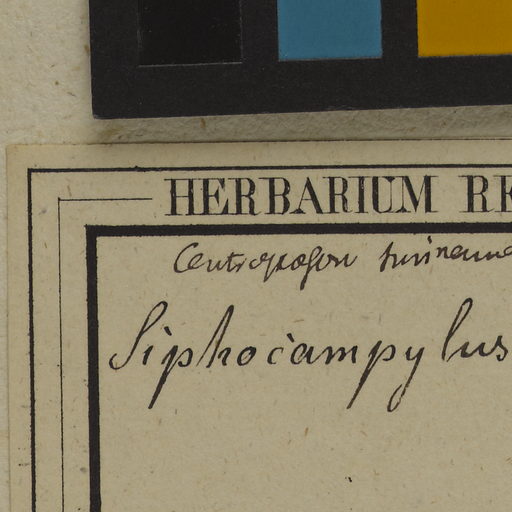 HERBARIUM RE
Centropogon surinamen
Siphocampylus